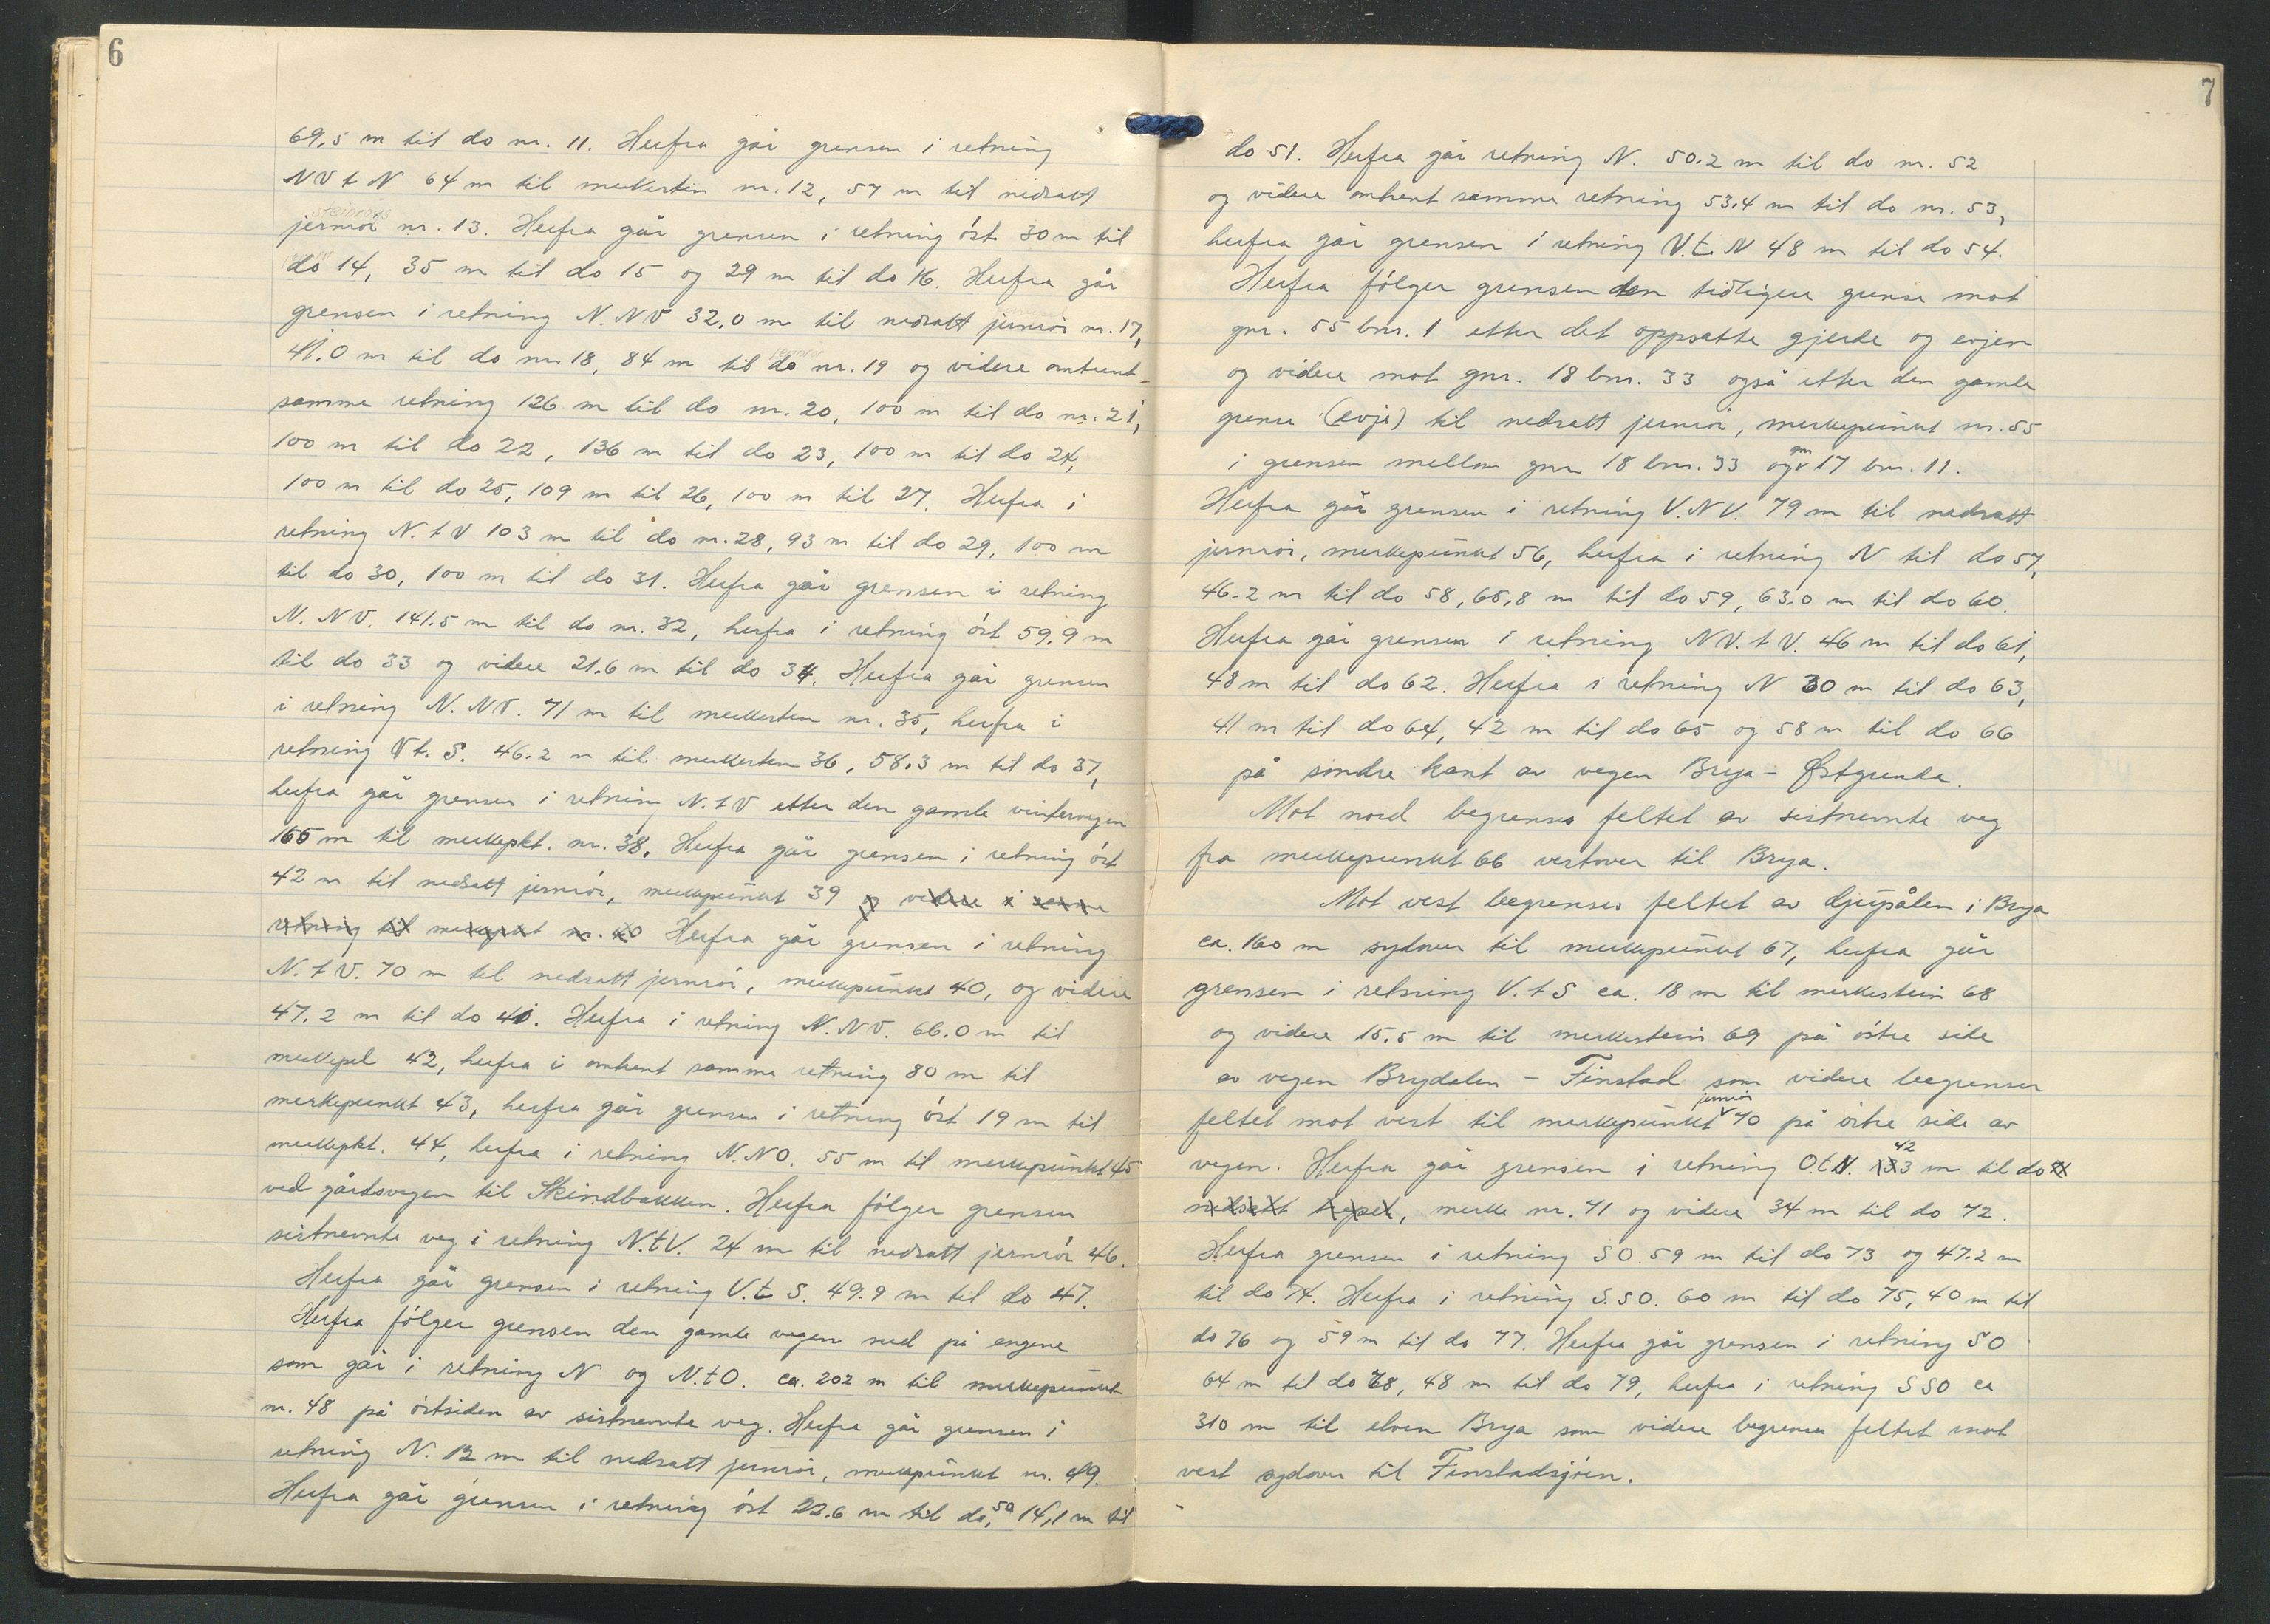 6
69,5 m til do nr. 11. Herfra går grensen i retning
NV t N 64 m til merkestein nr. 12, 57 m til nedsatt
steinrøys
jernrör nr. 13. Herfra går grensen i retning öst 30 m til
do 14, 35 m til do 15 og 29 m til do 16. Herfra går
grensen i retning N.NV 32,0 m til nedsatt jernrör nr. 17,
41,0 m til do nr 18, 84 m til do nr. 19 og videre omtrent
samme retning 126 m til do nr. 20, 100 m til do nr. 21,
100 m til do 22, 136 m til do 23, 100 m til do 24,
100 m til do 25, 109 m til 26, 100 m til 27. Herfra i
retning N. t V 103 m til do nr. 28, 93 m til do 29, 100 m
til do 30, 100 m til do 31. Herfra går grensen i retning
N. NV. 141.5 m til do nr. 32, herfra i retning öst 59,9 m
til do 33 og videre 21.6 m til do 34. Herfra går grensen
i retning N. NV. 71 m til merkesten nr. 35, herfra i
retning V t. S. 46.2 m til merkesten 36, 58.3 m til do 37,
herfra går grensen i retning N. t V etter den gamle vintervegen
165 m til merkepkt. nr. 38. Herfra går grensen i retning öst
42 m til nedsatt jernrör, merkepunkt 39 og videre i samme
retning til merkepkt nr. 40 Herfra går grensen i retning
N. t V. 70 m til nedsatt jernrör, merkepunkt 40, og videre
47.2 m til do 41. Herfra i retning N. NV. 66.0 m til
merkepel 42, herfra i omtrent samme retning 80 m til
merkepunkt 43, herfra går grensen i retning öst 19 m til
merkepkt. 44, herfra i retning N.NO. 55 m til merkepunkt 45
ved gårdsvegen til Skindbakken. Herfra fölger grensen
sistnevnte veg i retning N.t V. 24 m til nedsatt jernrör 46.
Herfra går grensen i retning V. t S. 49.9 m til do 47.
Herfra fölger grensen den gamle vegen ned på engene
som går i retning N og N.t O. ca. 202 m til merkepunkt
nr. 48 på östsiden av sistnevnte veg. Herfra går grensen i
retning N. 12 m til nedsatt jernrör, merkepunkt nr. 49.
Herfra går grensen i retning öst 22.6 m til do, 50 14,1 m til
7
do 51. Herfra går retning N. 50.2 m til do nr. 52
og videre omtrent samme retning 53.4 m til do nr. 53,
herfra går grensen i retning V.t. N 48 m til do 54.
Herfra fölger grensen den tidligere grense mot
gnr. 55 bnr. 1 etter det oppsatte gjerde og evjen
og videre mot gnr. 18 bnr. 33 også etter den gamle
grense (evje) til nedsatt jernrör, merkepunkt nr. 55
i grensen mellom gnr 18 bnr. 33 og gnr 17 bnr. 11.
Herfra går grensen i retning V. NV. 79 m til nedsatt
jernrör, merkepunkt 56, herfra i retning N til do 57,
46.2 m til do 58, 65,8 m til do 59, 63.0 m til do 60.
Herfra går grensen i retning NV. t V. 46 m til do 61,
48 m til do 62. Herfra i retning N 30 m til do 63,
41 m til do 64, 42 m til do 65 og 58 m til do 66
på söndre kant av vegen Brya - Østgrenda.
Mot nord begrenses feltet av sistnevnte veg
fra merkepunkt 66 vestover til Brya.
Mot vest begrenses feltet av djupålen i Brya
ca. 160 m sydover til merkepunkt 67, herfra går
grensen i retning V. t S ca. 18 m til merkestein 68
og videre 15.5 m til merkestein 69 på östre side
av vegen Brydalen - Finstad som videre begrenser
feltet mot vest til merkepunkt jernrör 70 på östre side av
vegen. Herfra går grensen i retning O.t N. 133 42 m til do
nedsatt trepel, merke nr. 71 og videre 34 m til do 72.
Herfra grensen i retning SO. 59 m til do 73 og 47.2 m
til do 74. Herfra i retning S.SO. 60 m til do 75, 40 m til
do 76 og 59 m til do 77. Herfra går grensen i retning SO
64 m til do 78, 48 m til do 79, herfra i retning SSO ca
310 m til elven Brya som videre begrenser feltet mot
vest sydover til Finstadsjöen.